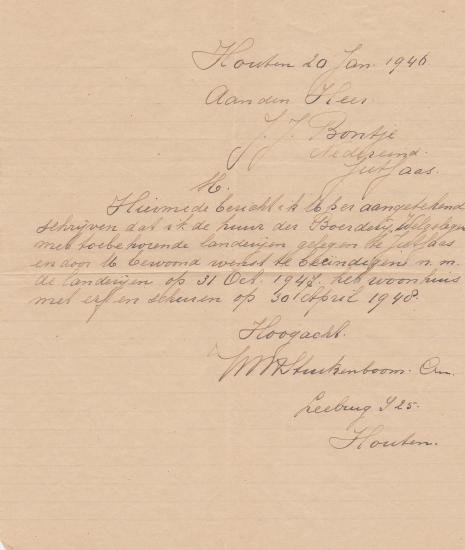 Houten 20 Jan. 1946
Aan den Heer
J. J. Bontje
Nedereind
Jutfaas
M.
Hiermede bericht ik U per aangetekend
schrijven dat ik de huur der Boerderij
met toebehorende landerijen gelegen te Jutfaas
en door U bewoond wenst te beëindigen n.m.
de landerijen op 31 Oct. 1947. het woonhuis
met erf en schuren op 30 April 1948.
Hoogacht.
Stuikenboom.
25.
Houten.